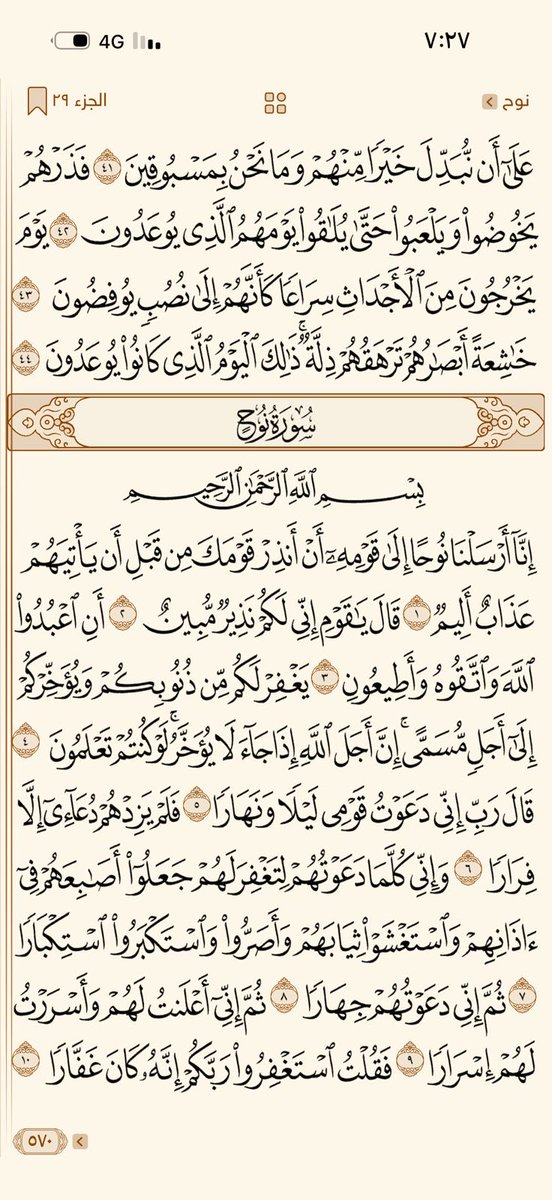 4G ٧:٢٧
نوح الجزء ٢٩
عَلَىٰٓ أَن نُّبَدِّلَ خَيْرًا مِّنْهُمْ وَمَا نَحْنُ بِمَسْبُوقِينَ ٤١ فَذَرْهُمْ
يَخُوضُوا۟ وَيَلْعَبُوا۟ حَتَّىٰ يُلَـٰقُوا۟ يَوْمَهُمُ ٱلَّذِى يُوعَدُونَ ٤٢ يَوْمَ
يَخْرُجُونَ مِنَ ٱلْأَجْدَاثِ سِرَاعًا كَأَنَّهُمْ إِلَىٰ نُصُبٍ يُوفِضُونَ ٤٣
خَـٰشِعَةً أَبْصَـٰرُهُمْ تَرْهَقُهُمْ ذِلَّةٌ ۚ ذَٰلِكَ ٱلْيَوْمُ ٱلَّذِى كَانُوا۟ يُوعَدُونَ ٤٤
سُورَةُ نُوحٍ
بِسْمِ ٱللَّهِ ٱلرَّحْمَـٰنِ ٱلرَّحِيمِ
إِنَّآ أَرْسَلْنَا نُوحًا إِلَىٰ قَوْمِهِۦٓ أَنْ أَنذِرْ قَوْمَكَ مِن قَبْلِ أَن يَأْتِيَهُمْ
عَذَابٌ أَلِيمٌ ١ قَالَ يَـٰقَوْمِ إِنِّى لَكُمْ نَذِيرٌ مُّبِينٌ ٢ أَنِ ٱعْبُدُوا۟
ٱللَّهَ وَٱتَّقُوهُ وَأَطِيعُونِ ٣ يَغْفِرْ لَكُم مِّن ذُنُوبِكُمْ وَيُؤَخِّرْكُمْ
إِلَىٰٓ أَجَلٍ مُّسَمًّى ۚ إِنَّ أَجَلَ ٱللَّهِ إِذَا جَآءَ لَا يُؤَخَّرُ ۖ لَوْ كُنتُمْ تَعْلَمُونَ ٤
قَالَ رَبِّ إِنِّى دَعَوْتُ قَوْمِى لَيْلًا وَنَهَارًا ٥ فَلَمْ يَزِدْهُمْ دُعَآءِىٓ إِلَّا
فِرَارًا ٦ وَإِنِّى كُلَّمَا دَعَوْتُهُمْ لِتَغْفِرَ لَهُمْ جَعَلُوٓا۟ أَصَـٰبِعَهُمْ فِىٓ
ءَاذَانِهِمْ وَٱسْتَغْشَوْا۟ ثِيَابَهُمْ وَأَصَرُّوا۟ وَٱسْتَكْبَرُوا۟ ٱسْتِكْبَارًا
٧ ثُمَّ إِنِّى دَعَوْتُهُمْ جِهَارًا ٨ ثُمَّ إِنِّىٓ أَعْلَنتُ لَهُمْ وَأَسْرَرْتُ
لَهُمْ إِسْرَارًا ٩ فَقُلْتُ ٱسْتَغْفِرُوا۟ رَبَّكُمْ إِنَّهُۥ كَانَ غَفَّارًا ١٠
٥٧٠